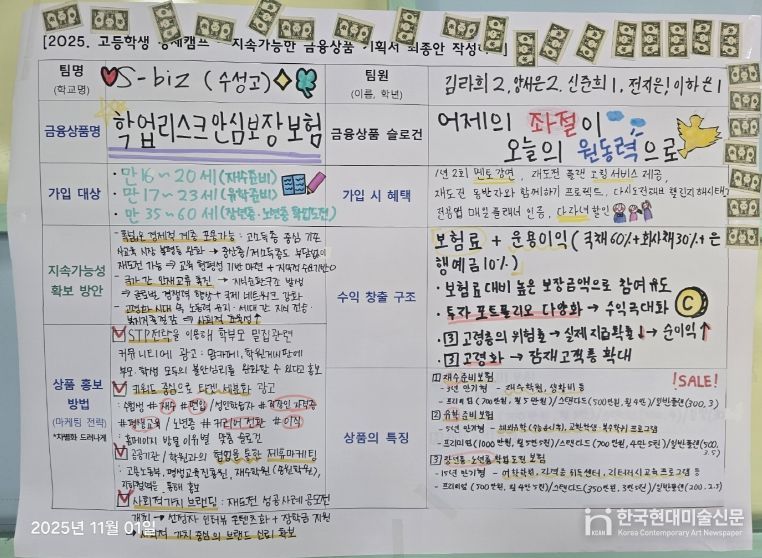 [2025. 고등학생 경제캠프 - 지속가능한 금융상품 기획서 최종안 작성
팀명
(학교명)
S-biz (수성고)
팀원
(이름, 학년)
김라희 2, 양서은 2, 신준희 1, 전지은 1, 이하은 1
금융상품명
학업리스크안심보장보험
금융상품 슬로건
어제의 좌절이
오늘의 원동력으로
가입 대상
· 만 16~20세 (재수준비)
· 만 17~23세 (유학준비)
· 만 35~60세 (장년층·노년층 학업도전)
가입 시 혜택
1년 2회 멘토 강연, 재도전 플랜 코칭 서비스 제공,
재도전 동반자와 함께하기 프로젝트, 다시도전대브 챌린지 해시태그
전용앱 매일 플래너 인증, 다자녀 할인
지속가능성
확보 방안
- 폭넓은 경제적 계층 포용가능 : 고소득층 중심 기존
사교육 시장 불평등 완화 → 중산층/저소득층도 부담없이
재도전 가능 ⇒ 교육 형평성 기반 마련 + 지속적 수요기반
- 국가 간 인재교류 촉진 → 지식순환구조 발생
⇒ 글로벌 경쟁력 향상 + 국제 네트워크 강화
- 고령화 시대 속 노동력 유지·세대 간 지식 전승·
복지지출절감 ⇒ 사회적 효율성↑
수익 창출 구조
보험료 + 운용이익 (국채 60% + 회사채 30% + 은
행예금 10%)
· 보험료 대비 높은 보장금액으로 참여 유도
· 투자 포트폴리오 다양화 → 수익극대화
· 3 고령층의 위험률 → 실제 지급확률↓ → 순이익↑
· 3 고령화 → 잠재고객층 확대
상품 홍보
방법
(마케팅 전략)
*차별화 드러나게
STP전략을 이용해 학부모 밀집관련
커뮤니티에 광고 : 맘카페, 학원게시판에
부모·학생 모두의 불안심리를 완화할 수 있다고 홍보
키워드 중심으로 타겟 세분화 광고
: 수험생 #재수 #편입 / 성인학습자 #직장인 자격증
#평생교육 / 노년층 #커리어전환 #이직
: 홈페이지 방문 이유별 맞춤 슬로건
공공기관 / 학원과의 협업을 통한 제휴마케팅
: 고용노동부, 평생교육진흥원, 재수학원 (종로학원),
통해 홍보
사회적가치 브랜딩 : 재도전 성공사례 공모전
개최 → 선정자 인터뷰 콘텐츠화 + 장학금 지원
⇒ 사회적 가치 중심의 브랜드 신뢰 확보
상품의 특징
!SALE!
1 재수준비보험
- 3년 만기형 - 재수학원, 생활비 등
- 프리미엄 (700만원, 월 5만원) / 스탠다드 (500만원, 월 4만) / 일반플랜 (300, 3)
2 유학 준비 보험
- 5년 만기형 - 교환학생, 복수학위 프로그램
- 프리미엄 (1000만원, 월 5만5천) / 스탠다드 (700만원, 4만5천) / 일반플랜 (500, 3.5)
3 장년층·노년층 학업도전 보험
- 15년 만기형 - 어학학원, 자격증 취득센터, 리터러시교육프로그램 등
- 프리미엄 (500만원, 월 4만5천) / 스탠다드 (350만원, 3만5천) / 일반플랜 (200, 2.5)
2025년 11월 01일
한국현대미술신문
KCAN
Korea Contemporary Art Newspaper